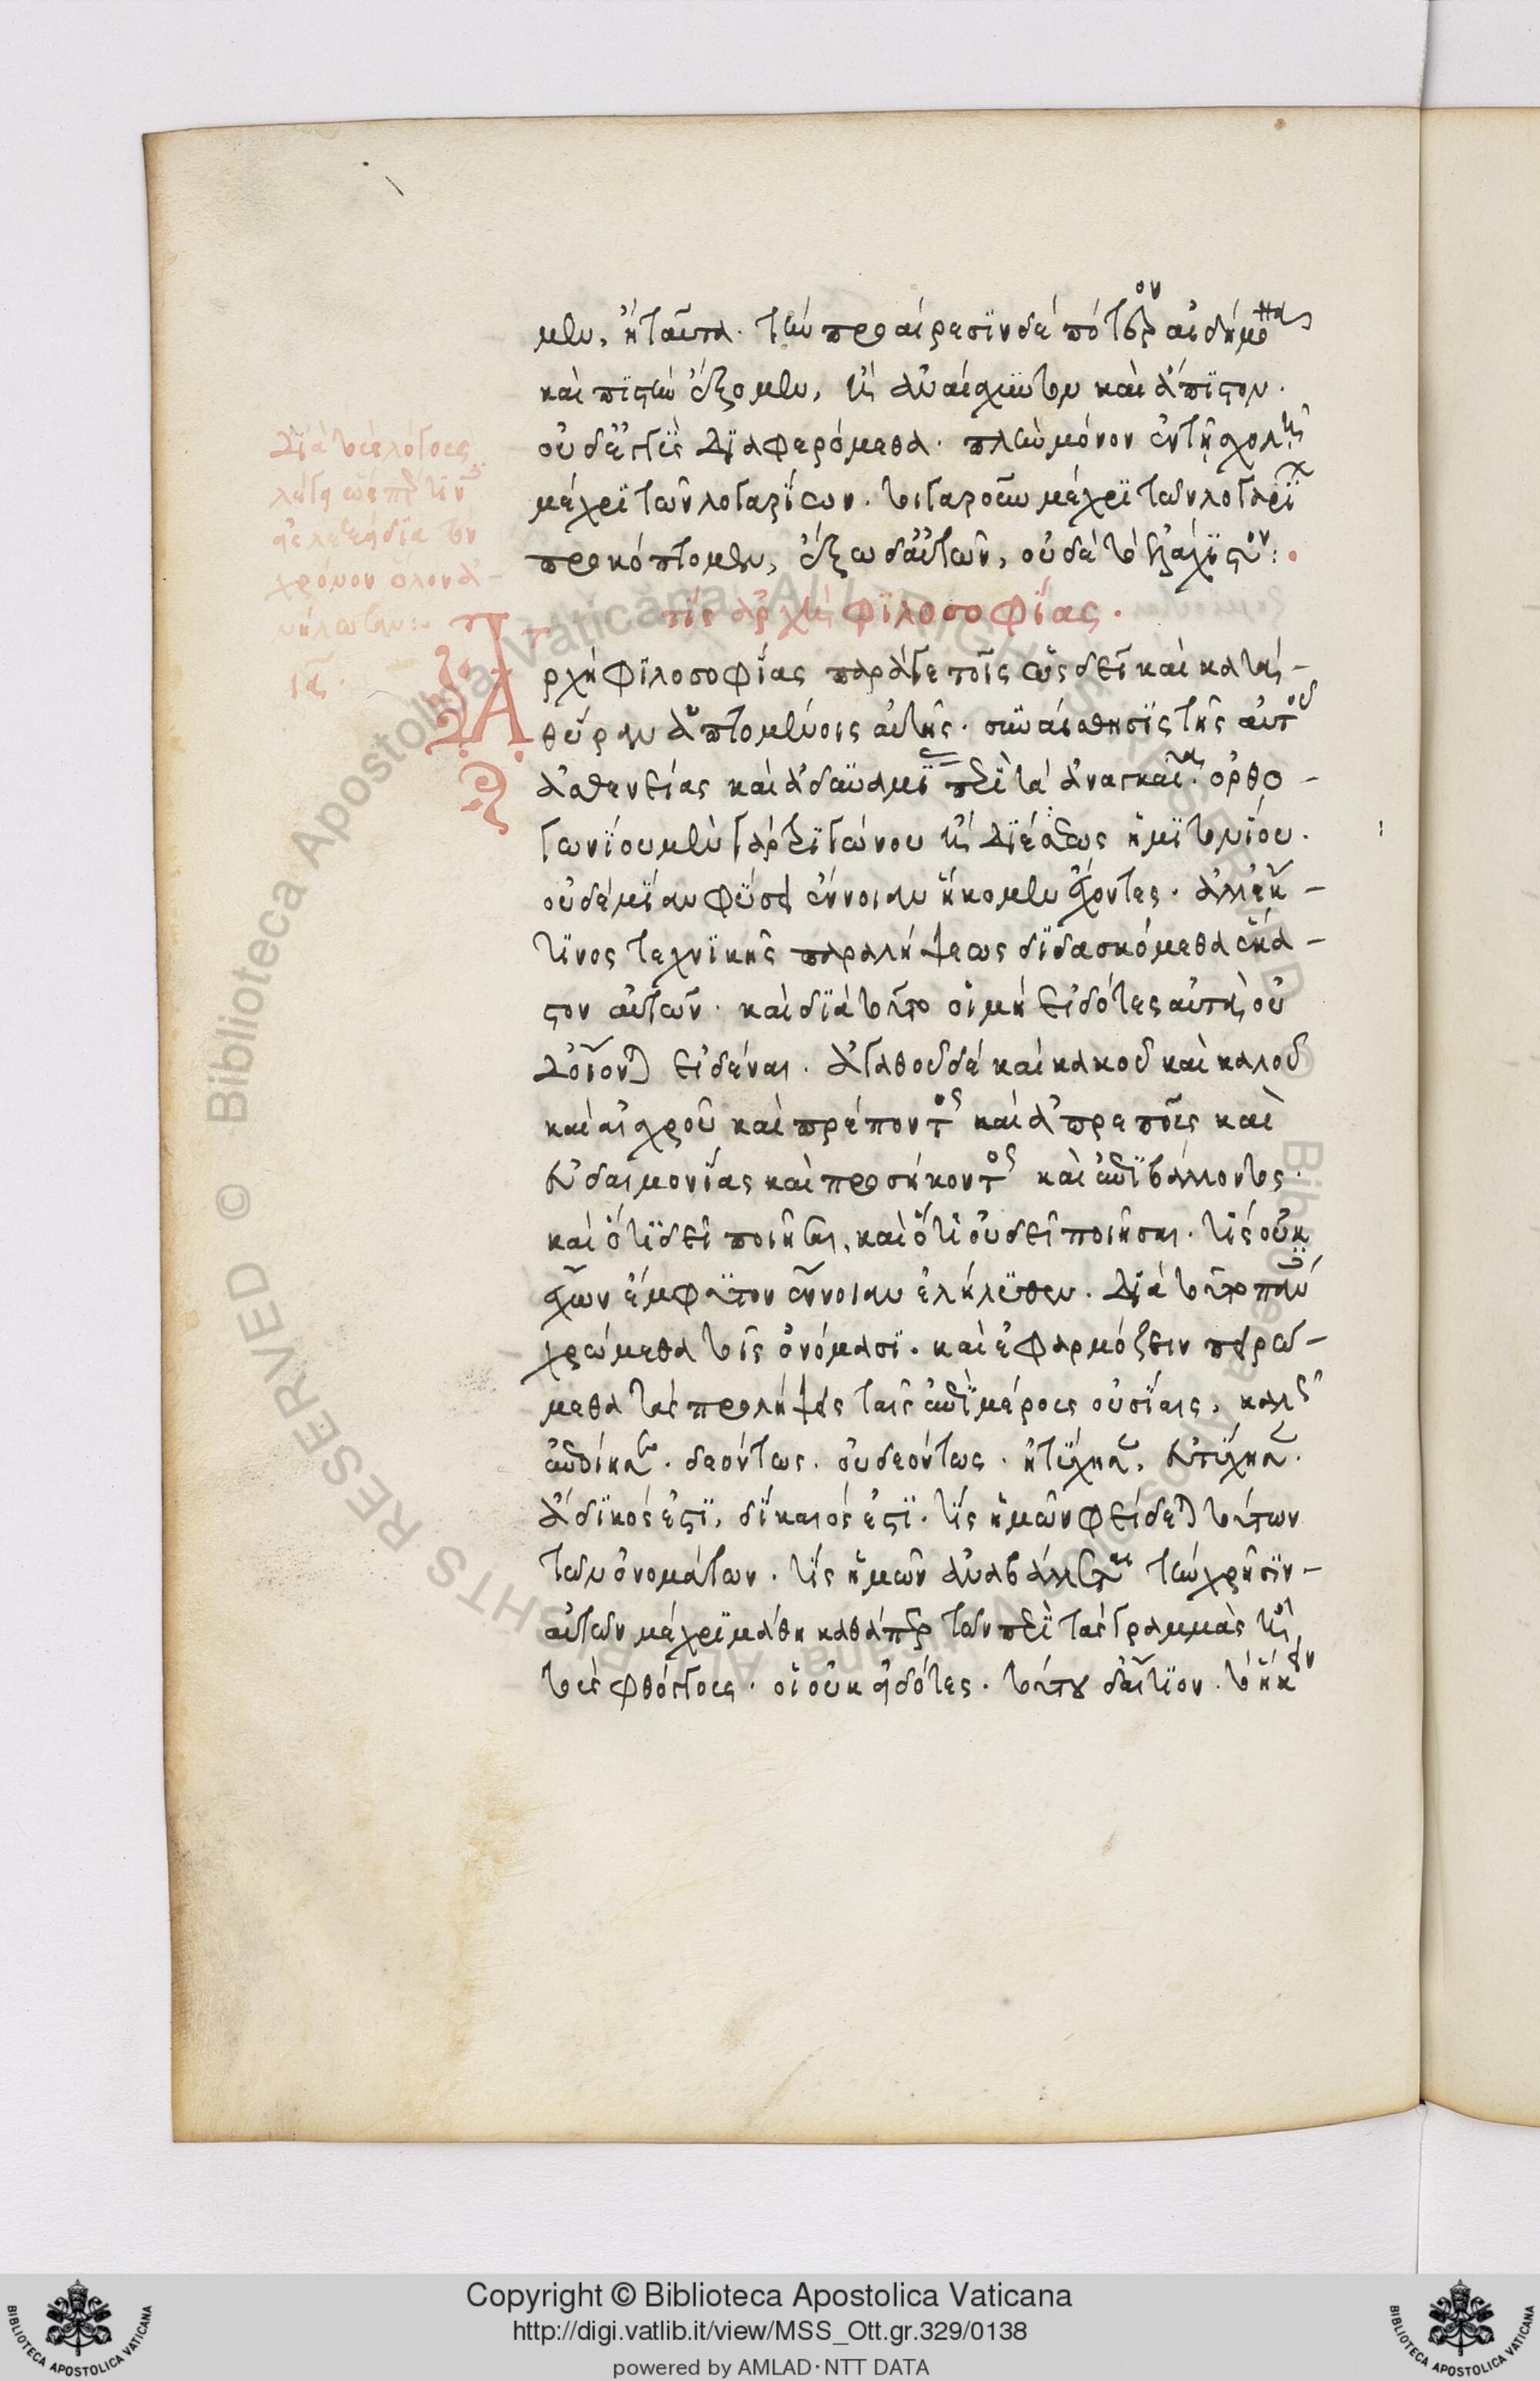 μεν, ἢ ταῦτα. τὴν προαίρεσιν δὲ πότερον αἰδήμονα
καὶ πιστὴν ἕξομεν, ἢ ἀναίσχυντον καὶ ἄπιστον.
οὐδ' ἐγγὺς διαφερόμεθα. πλὴν μόνον ἐν τῇ σχολῇ
μέχρι τῶν λογαρίων. τοιγαροῦν μέχρι τῶν λογαρίων
προκόπτομεν, ἔξω δ' αὐτῶν, οὐδὲ τὸ ἐλάχιστον:.
τίς ἀρχὴ φιλοσοφίας.
Ἀρχὴ φιλοσοφίας παρά γε τοῖς ὡς δεῖ καὶ κατὰ
θύραν ἁπτομένοις αὐτῆς. συναίσθησις τῆς αὑτοῦ
ἀσθενείας καὶ ἀδυναμίας περὶ τὰ ἀναγκαῖα. ὀρθο-
γωνίου μὲν γὰρ τριγώνου ἢ διέσεως ἡμιτονίου.
οὐδεμίαν φύσει ἔννοιαν ἥκομεν ἔχοντες. ἀλλ' ἔκ
τινος τεχνικῆς παραλήψεως διδασκόμεθα ἕκα-
στον αὐτῶν. καὶ διὰ τοῦτο οἱ μὴ εἰδότες αὐτὰ, οὐδ'
οἴονται εἰδέναι. ἀγαθοῦ δὲ καὶ κακοῦ καὶ καλοῦ
καὶ αἰσχροῦ καὶ πρέποντος καὶ ἀπρεποῦς καὶ
εὐδαιμονίας καὶ προσήκοντος καὶ ἐπιβάλλοντος.
καὶ ὅτι δεῖ ποιῆσαι, καὶ ὅτι οὐ δεῖ ποιῆσαι. τίς οὐκ
ἔχων ἔμφυτον ἔννοιαν ἐλήλυθεν. διὰ τοῦτο πάντες
χρώμεθα τοῖς ὀνόμασι. καὶ ἐφαρμόζειν πειρώ-
μεθα τὰς προλήψεις ταῖς ἐπὶ μέρους οὐσίαις, καλῶς
ἐποίησεν. δεόντως. οὐ δεόντως. ἠτύχησεν, εὐτύχησεν.
ἄδικός ἐστι, δίκαιός ἐστι. τίς ἡμῶν φείδεται τούτων
τῶν ὀνομάτων. τίς ἡμῶν ἀναβάλλεται τὴν χρῆσιν
αὐτῶν μέχρι μάθῃ καθάπερ τῶν περὶ τὰς γραμμὰς ἢ
τοὺς φθόγγους. οἱ οὐκ εἰδότες. τούτου δ' αἴτιον. τὸ ἥκειν
διὰ τοὺς λόγους
χρόνον ὅλον ἀ-
νήλωσαν:.
ια.
Copyright © Biblioteca Apostolica Vaticana
http://digi.vatlib.it/view/MSS_Ott.gr.329/0138
powered by AMLAD·NTT DATA